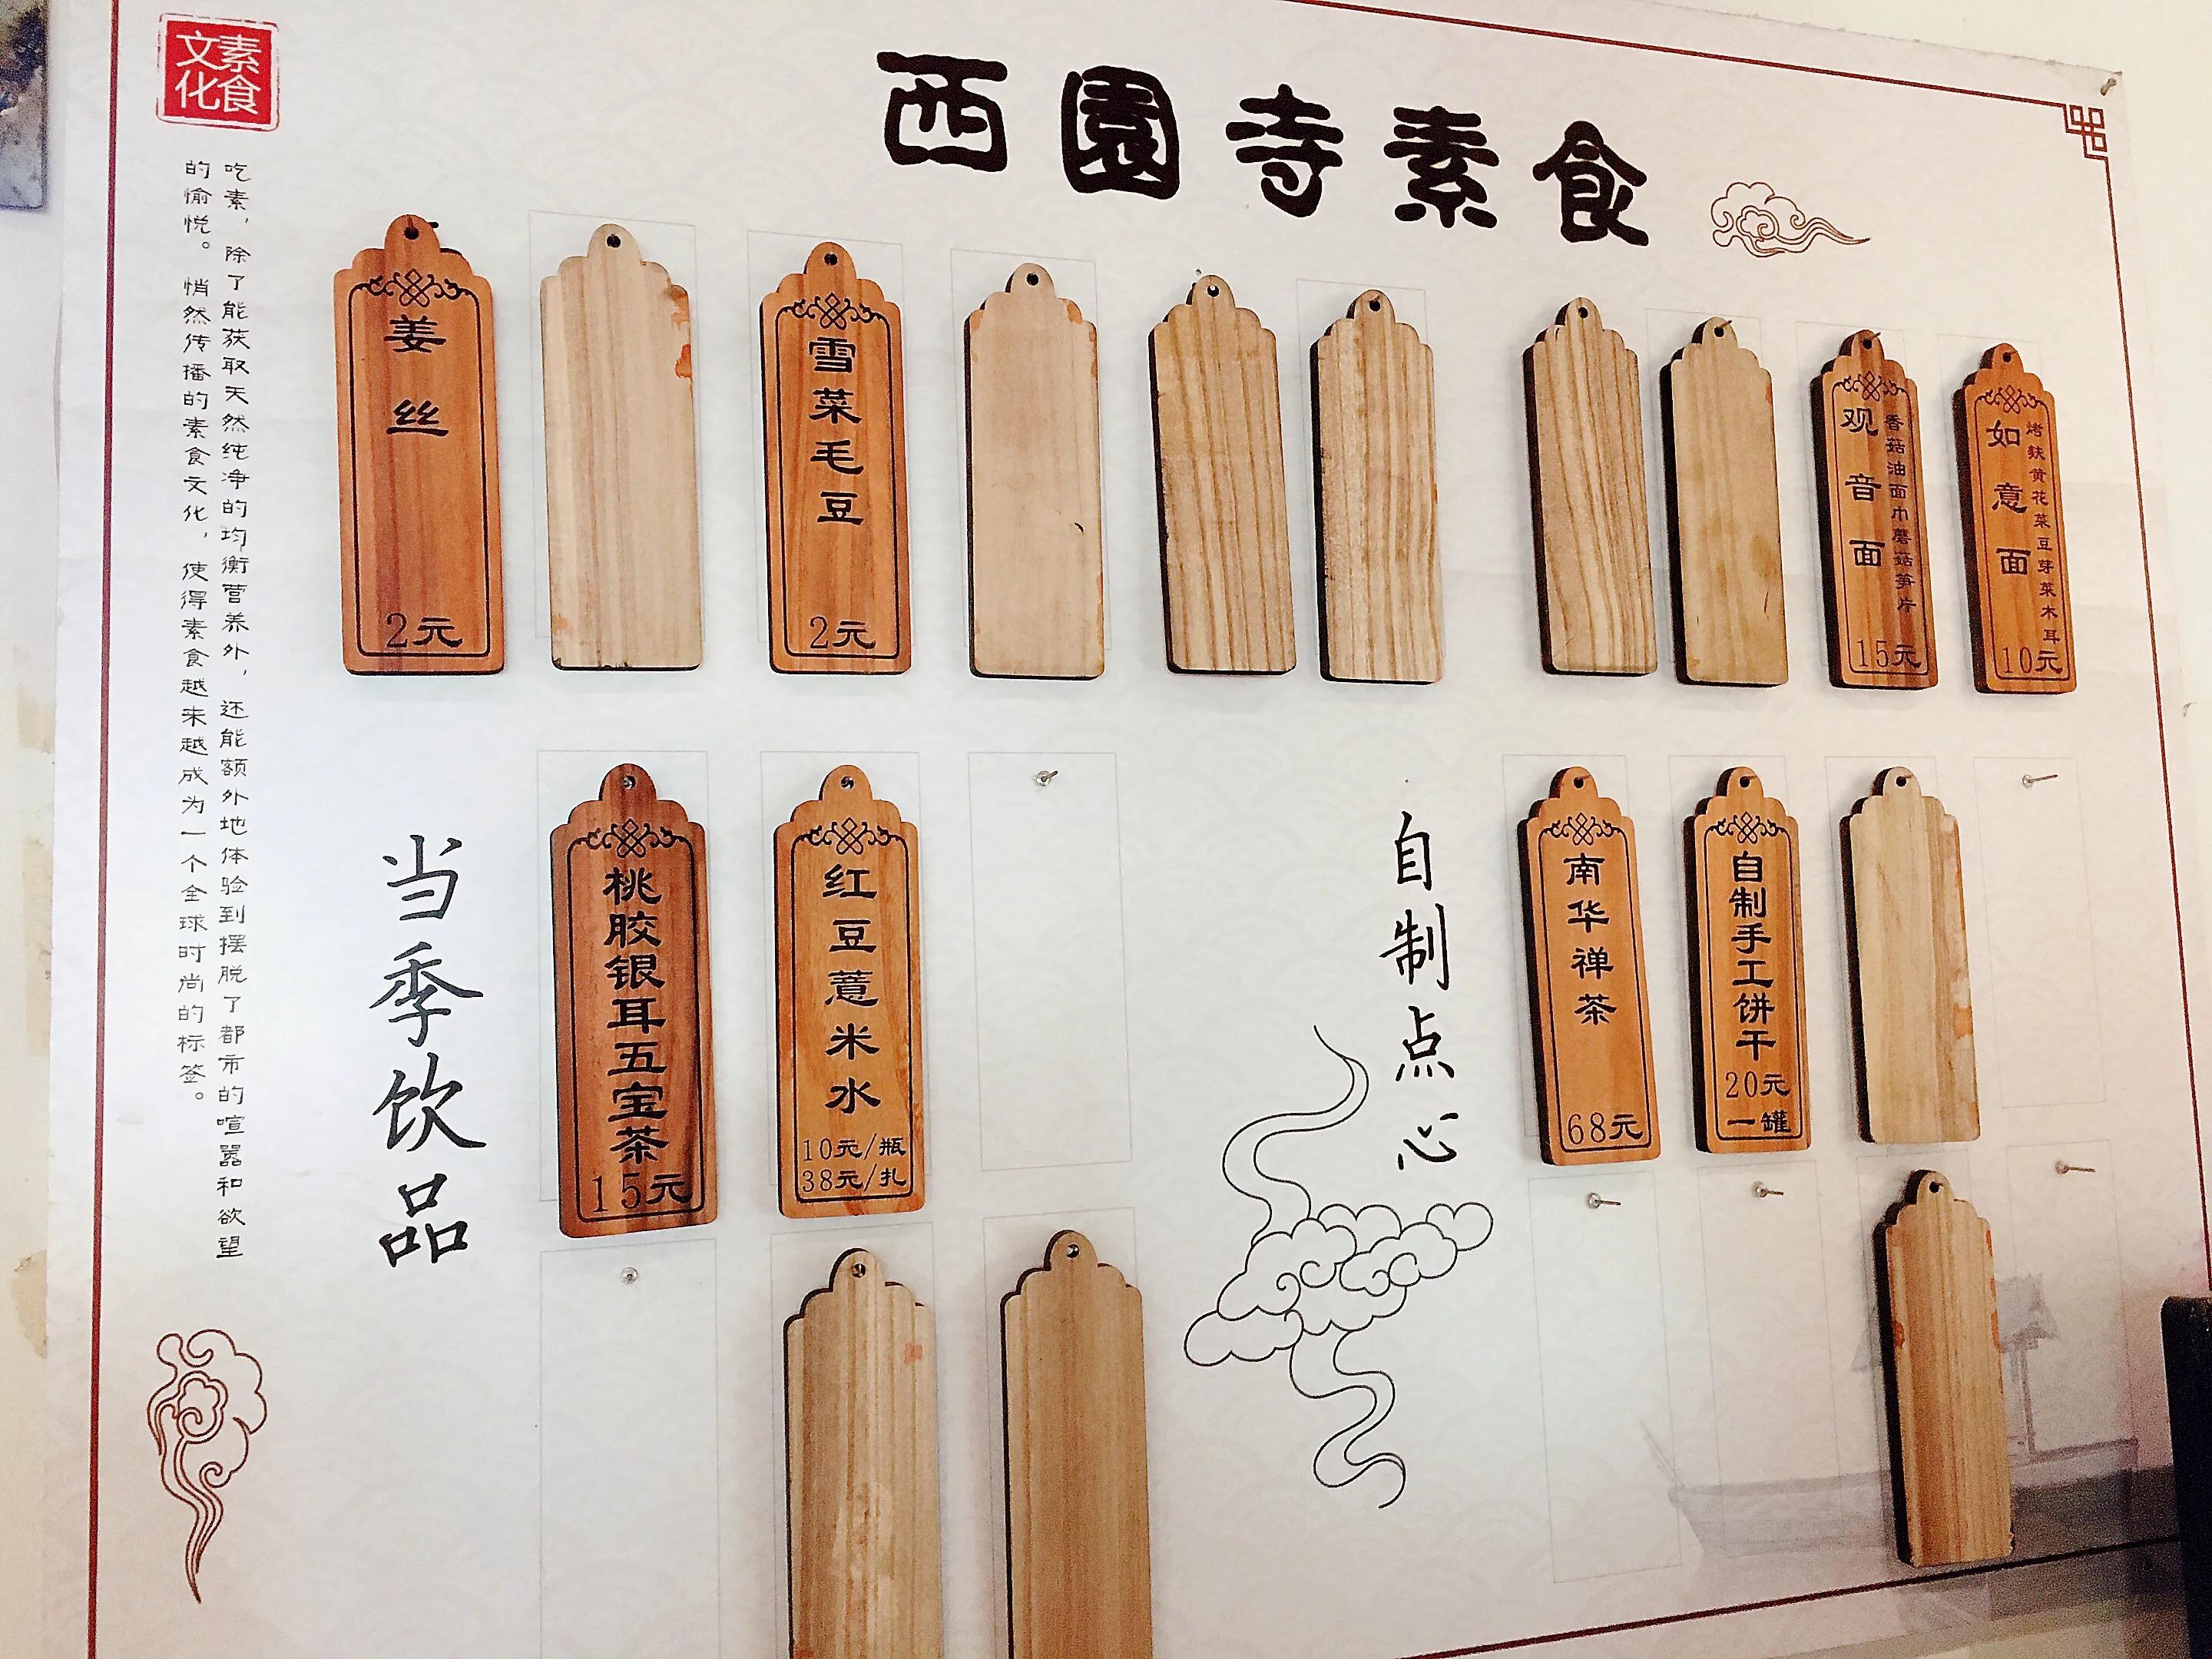 西園寺素食
素食
文化
吃素，除了能获取天然纯净的均衡营养外，还能额外地体验到摆脱了都市的喧嚣和欲望
的愉悦。悄然传播的素食文化，使得素食越来越成为一个全球时尚的标签。
姜丝
2元
雪菜毛豆
2元
观音面
香菇油面巾蘑菇笋片
15元
如意面
烤麸黄花菜豆芽菜木耳
10元
当季饮品
桃胶银耳五宝茶
15元
红豆薏米水
10元/瓶
38元/扎
自制点心
南华禅茶
68元
自制手工饼干
20元
一罐